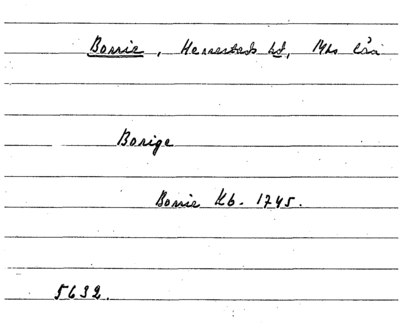 Borrie, Herrestads hd, Mhs län
Borige
Borrie Kb. 1745.
5632.